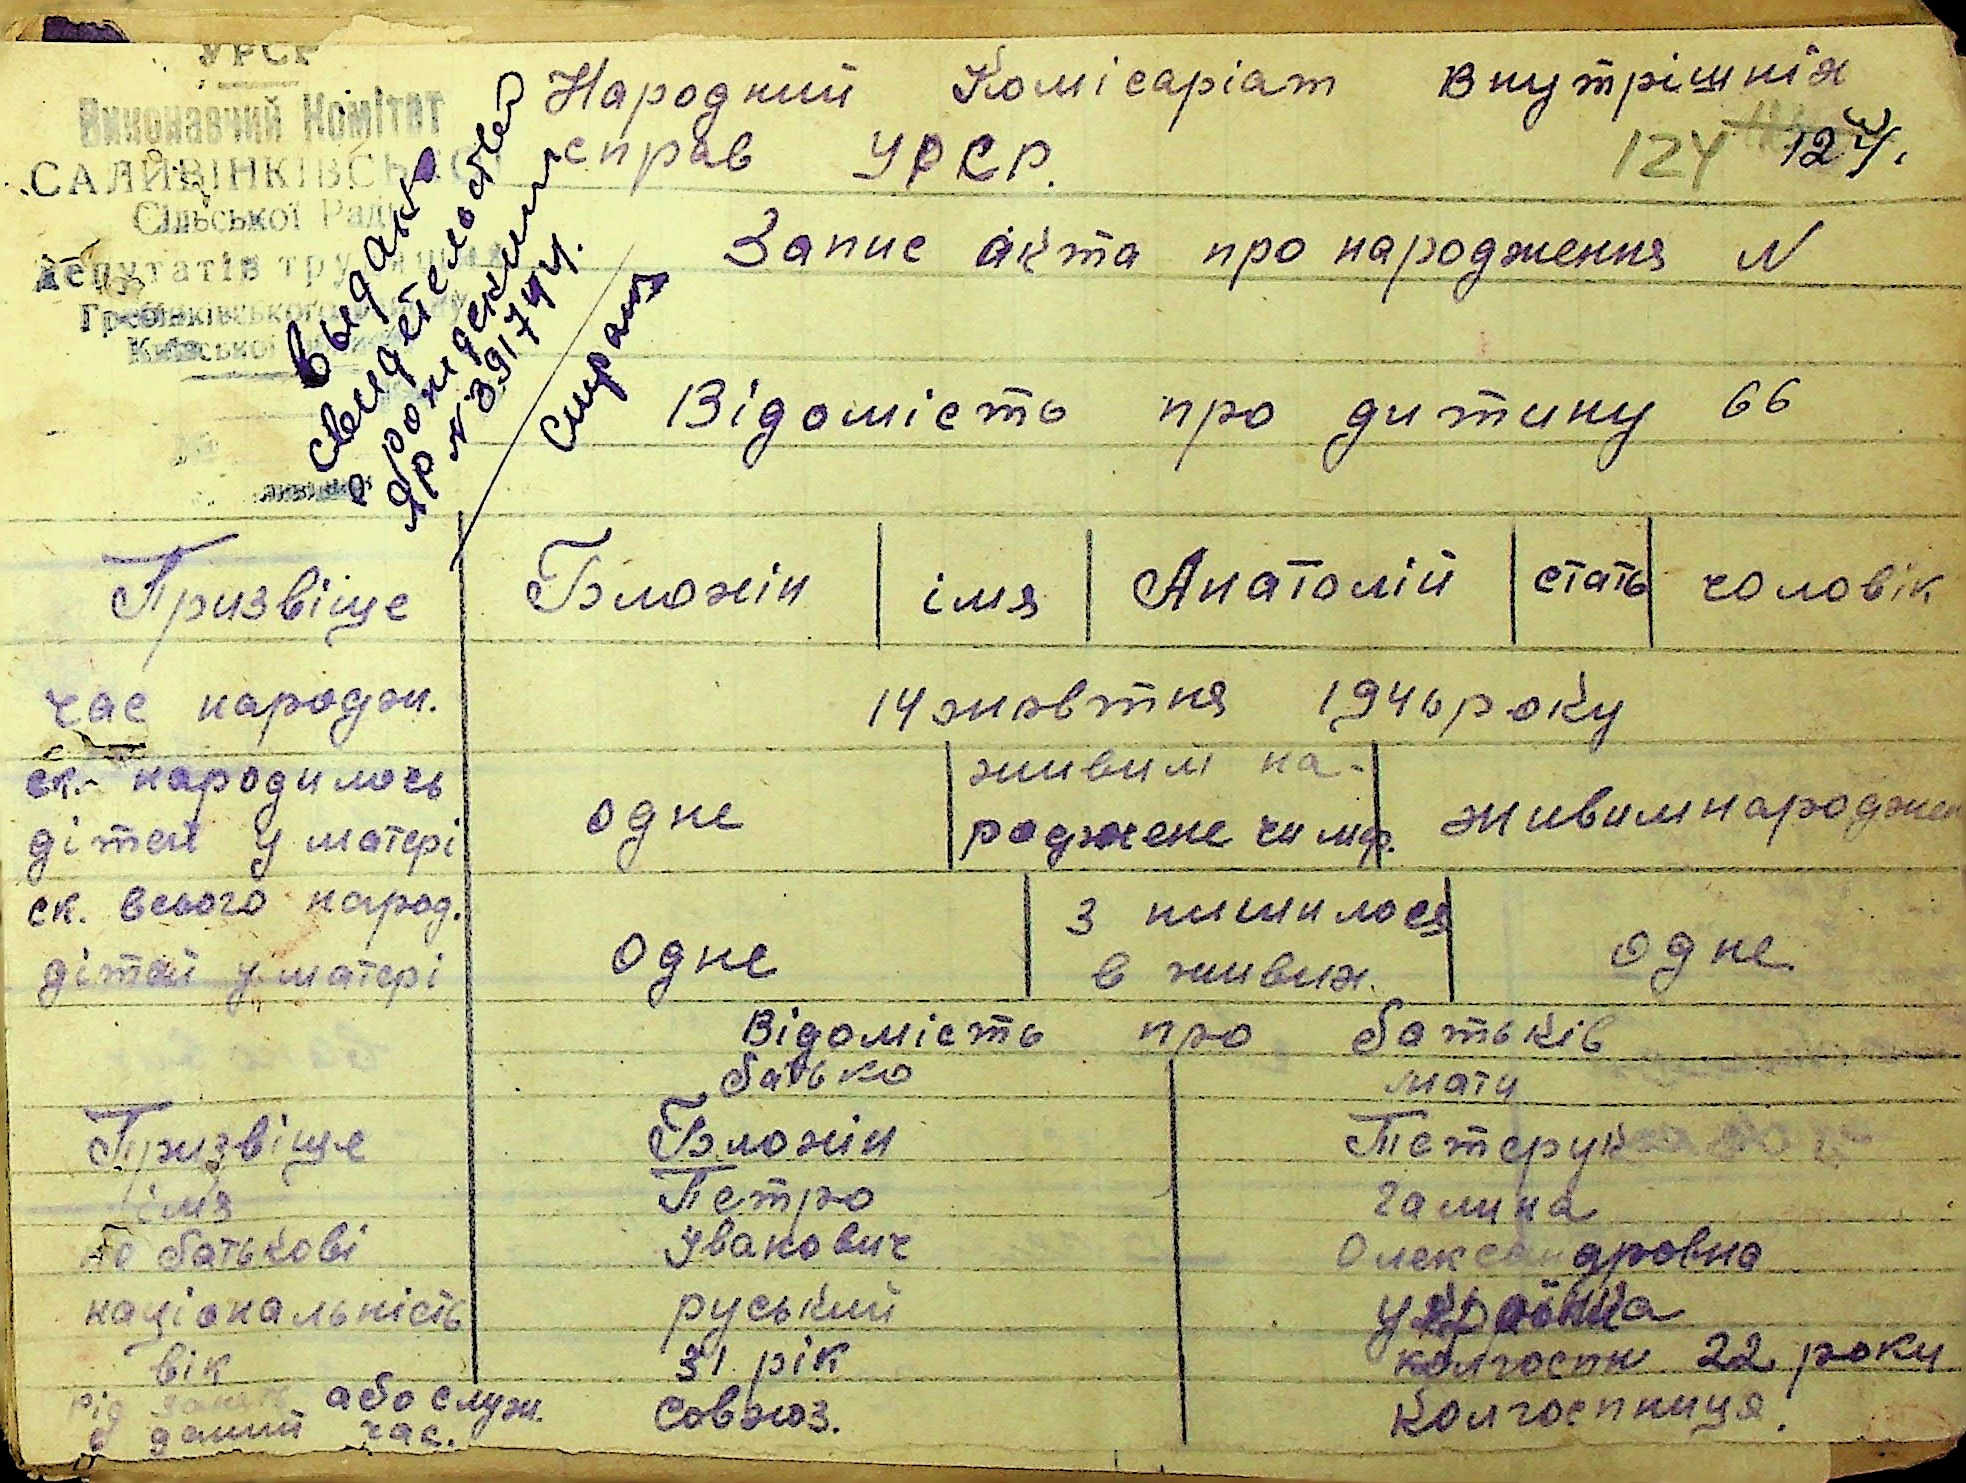 УРСР
Виконавчий Комітет
САЛИВІНКІВСЬКОЇ
Сільської Ради
Депутатів трудящих
Гребінківського району
Київської
Выдано
свидетельство
о рождении
ЯР № 391744.
Народний Комісаріат Внутрішніх
справ УРСР.
124 124.
Запис акта про народження N
Відомість про дитину 66
Призвіще Блохін імя Анатолій стать чоловік
час народж. 14 жовтня 1946 року
ск. народилось дітей у матері одне живим народжене чи мр. живимнароджен
ск. всього народ. дітей у матері одне з них лишилося в живих. одне
Відомість про батьків
батько мати
Призвіще Блохін Тетерук
імя Петро Галина
по батькові Іванович Олександровна
національність руський українка
вік 31 рік колгоспн 22 року
рід занят або служ. Совхоз. Колгоспниця.
в даний час.